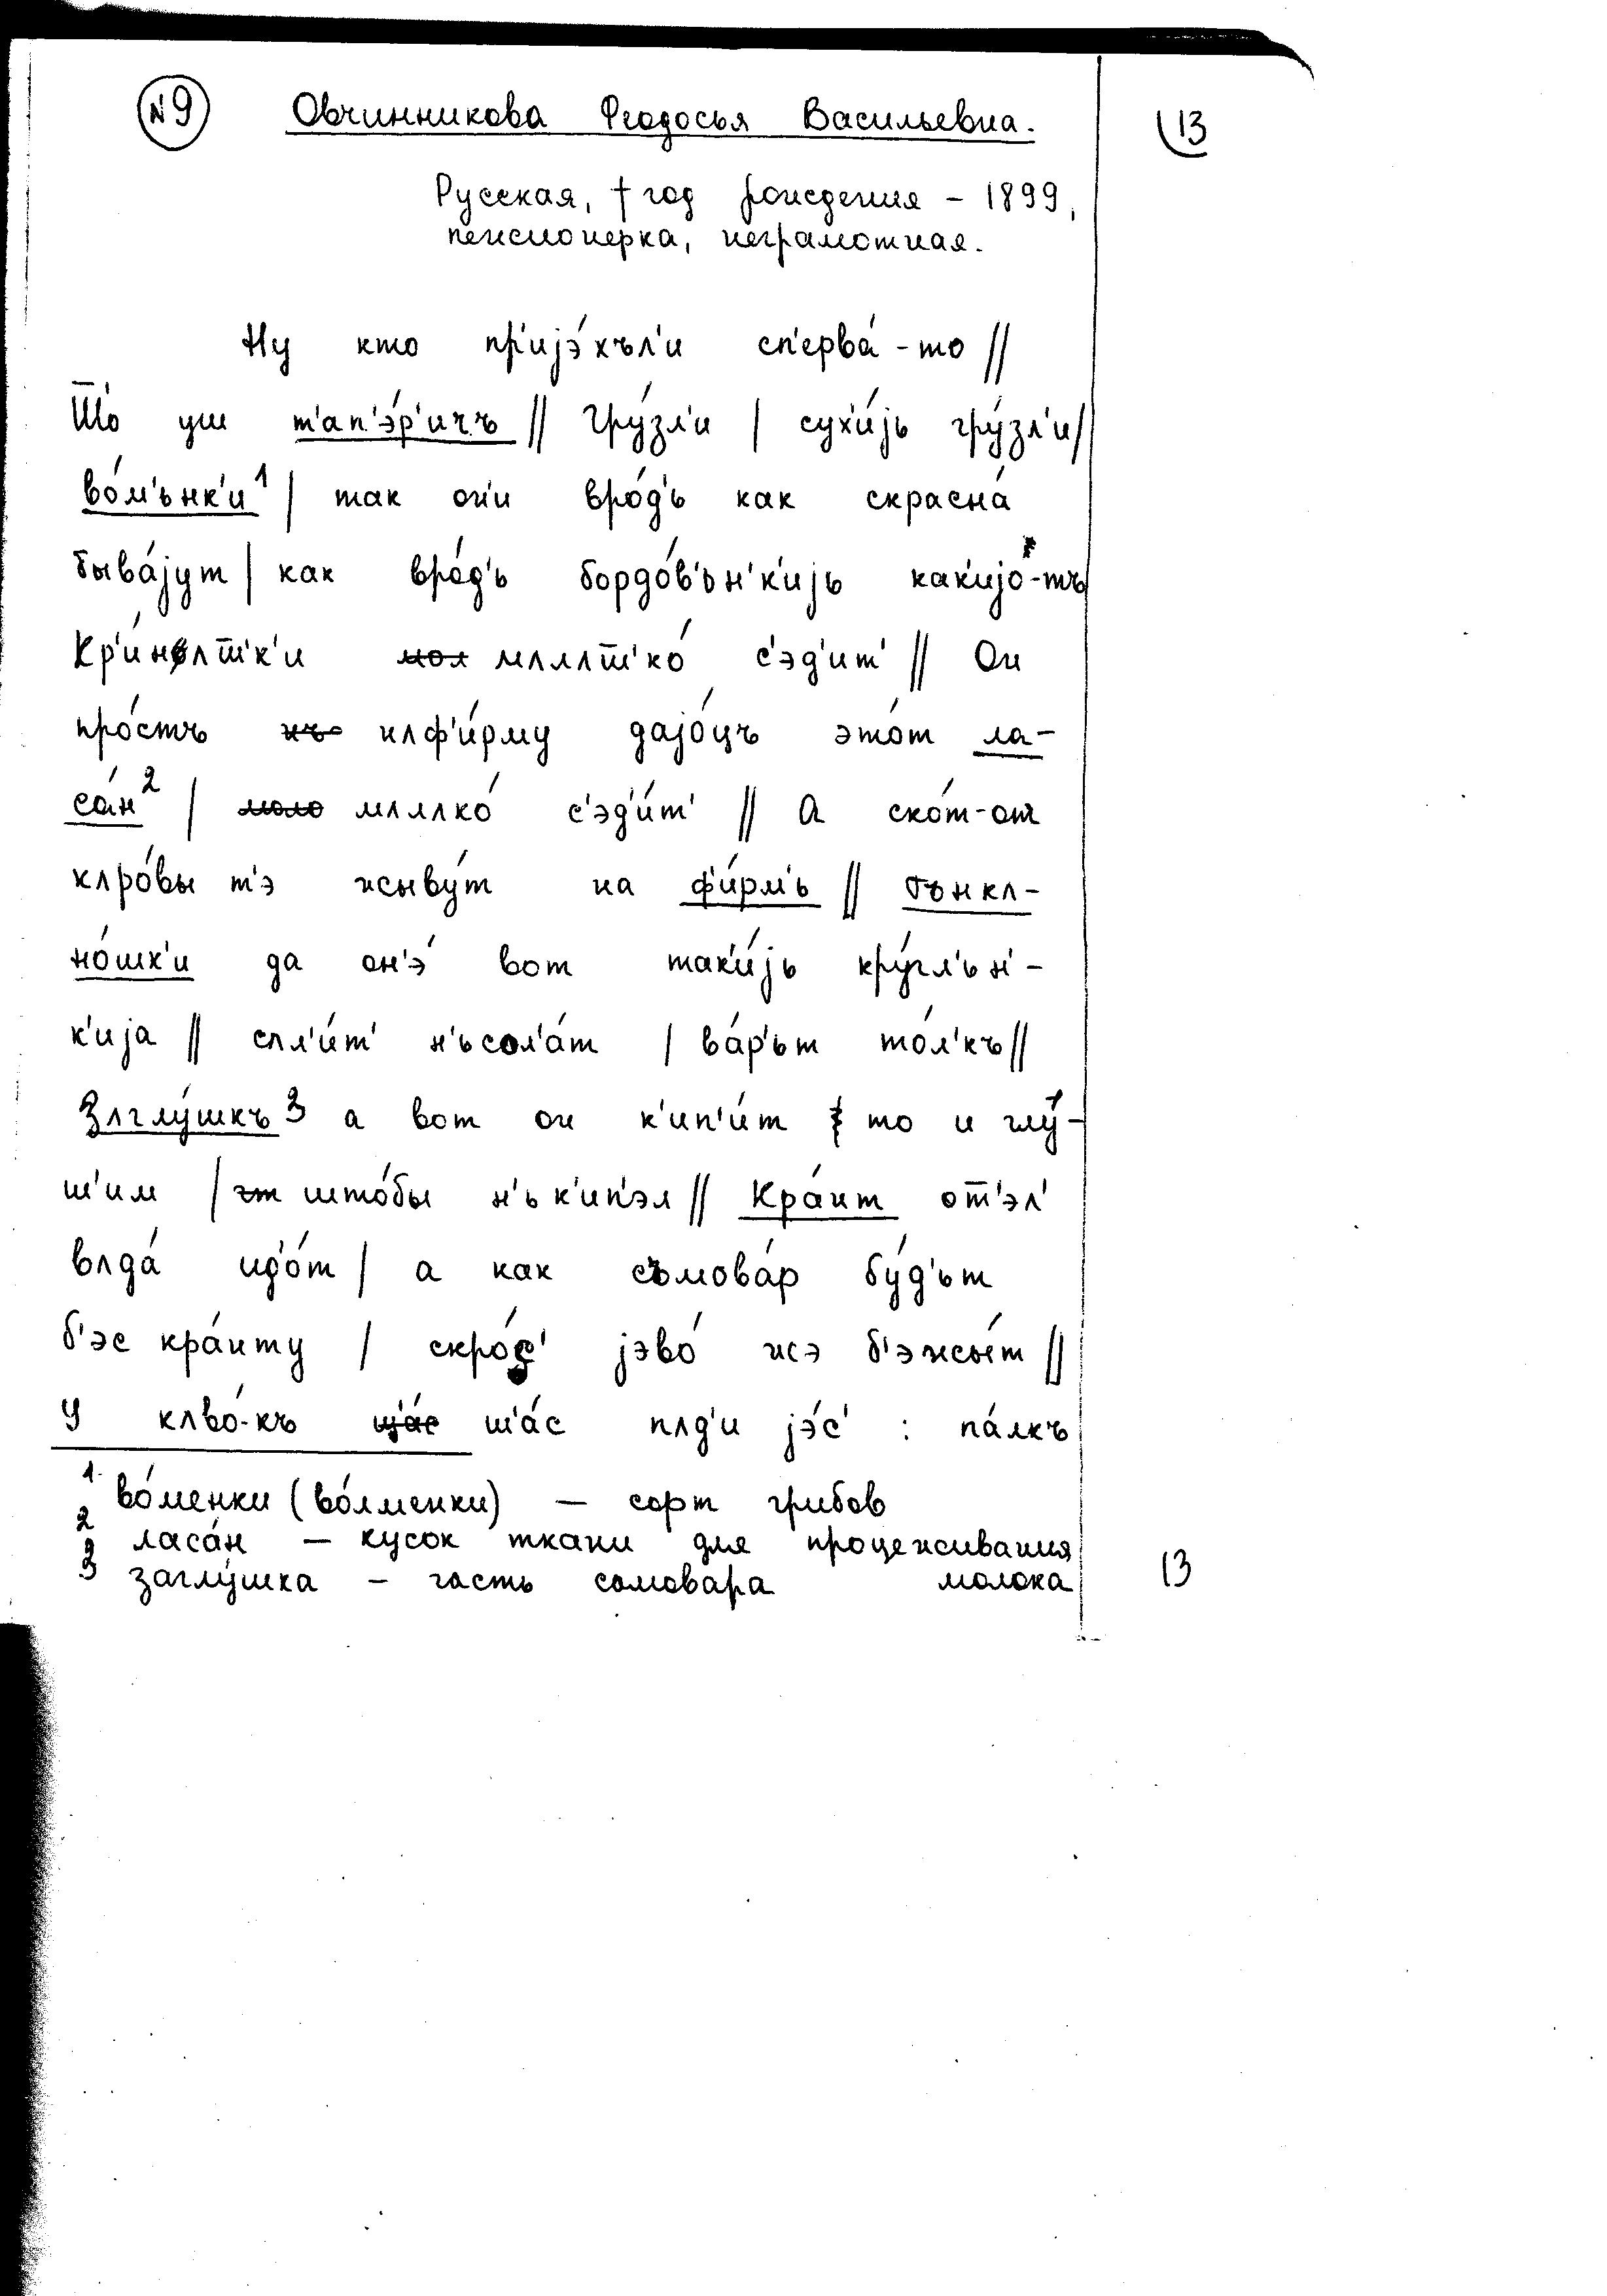 N9 Овчинникова Феодосья Васильевна. 13
Русская, † год рождения – 1899,
пенсионерка, неграмотная.
Ну кто пр'ијэ́хъл'и сп'ерва́-то //
Шо́ уш т'ап'э́р'ичъ // Гру́зл'и / сух'и́јь гру́зл'и/
во́м'ънк'и¹ / так он'и вро́д'ь как скрасна́
быва́јут / как вро́д'ь бордо́в'ън'к'ијь как'ијо́-тъ
Кр'и́нʌт̅ш'к'и мʌлʌт̅ш'ко́ с'эд'ит' // Он
про́стъ нʌф'и́рму дајо́цъ это́т ла-
са́н² / мʌлако́ с'эд'и́т' // А ско́т-от
кʌро́вы т'э жыву́т на ф'и́рм'ь // Гънкʌ-
но́шк'и да он'э́ вот так'и́јь кру́гл'ьн'-
к'ија // спл'и́т' н'ьсол'а́т / ва́р'ьт то́л'къ//
Зʌглу́шкъ³ а вот он к'ип'и́т то и глу́-
ш'им / што́бы н'ь к'ип'эл // Кра́нт от'эл'
вʌда́ ид'о́т / а как съмова́р бу́д'ьт
б'эс кра́нту / скро́с' јэво́ жэ б'эжы́т //
У кʌво́-къ ш'а́с пʌд'и јэ́с' : па́лкъ
¹ во́менки (во́лменки) – сорт грибов
² ласа́н – кусок ткани для процеживания
³ заглу́шка – часть самовара молока 13